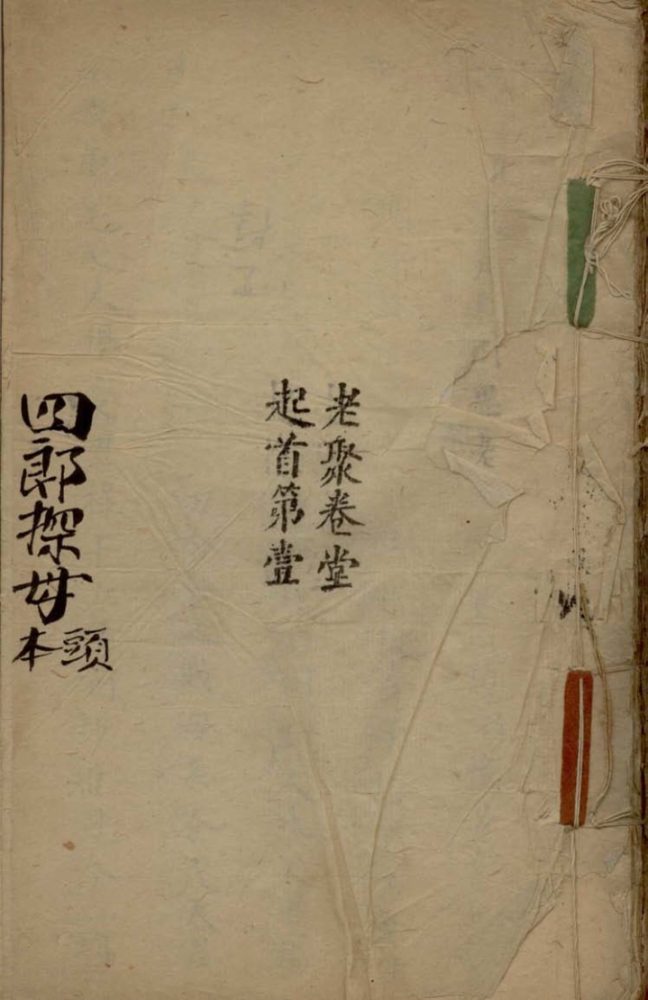 老聚卷堂
起首第壹
四郎探母
頭本